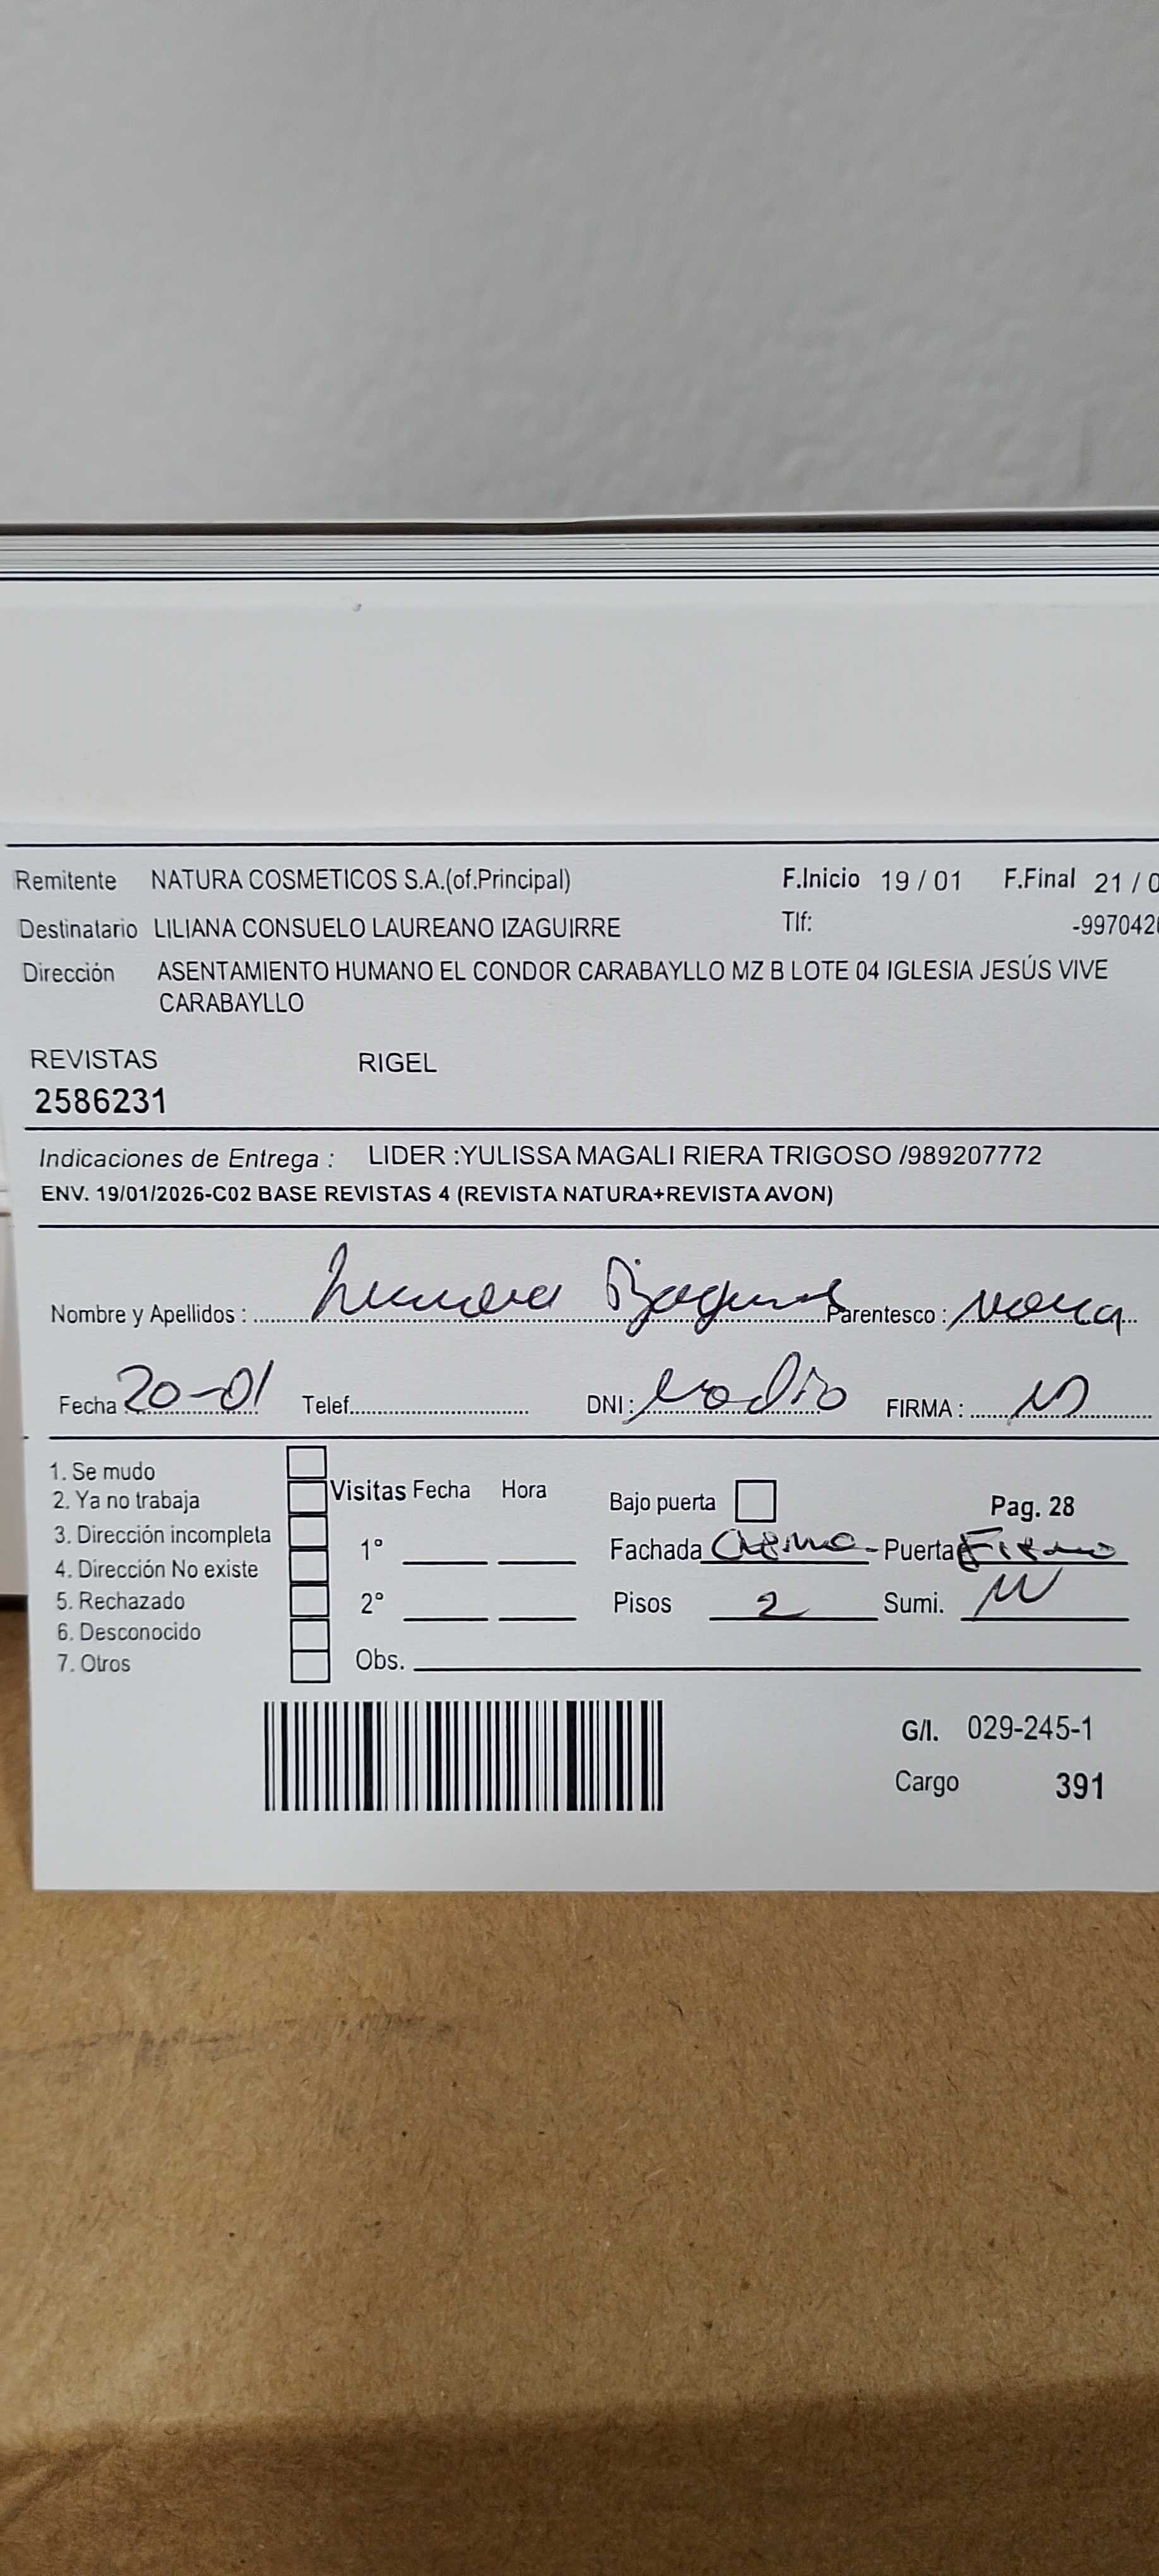 Remitente NATURA COSMETICOS S.A.(of.Principal) F.Inicio 19 / 01 F.Final 21 / 0
Destinatario LILIANA CONSUELO LAUREANO IZAGUIRRE Tlf: -9970420
Dirección ASENTAMIENTO HUMANO EL CONDOR CARABAYLLO MZ B LOTE 04 IGLESIA JESÚS VIVE
CARABAYLLO
REVISTAS RIGEL
2586231
Indicaciones de Entrega : LIDER :YULISSA MAGALI RIERA TRIGOSO /989207772
ENV. 19/01/2026-C02 BASE REVISTAS 4 (REVISTA NATURA+REVISTA AVON)
Nombre y Apellidos : Parentesco :
Fecha 20-01 Telef. DNI : FIRMA :
1. Se mudo
2. Ya no trabaja Visitas Fecha Hora Bajo puerta Pag. 28
3. Dirección incompleta 1° Fachada Crema Puerta
4. Dirección No existe
5. Rechazado 2° Pisos 2 Sumi.
6. Desconocido
7. Otros Obs.
G/I. 029-245-1
Cargo 391